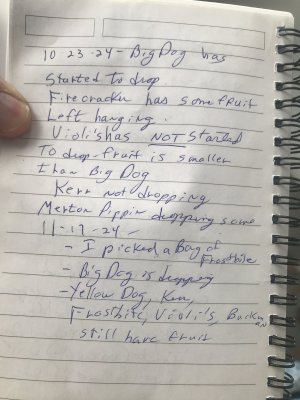 10-23-24 - Big Dog has
Started to drop
Firecracker has some fruit
Left hanging.
Violi'shas NOT Started
To drop fruit is smaller
than Big Dog
Kerr not dropping
Merton Pippin dropping some
11-17-24 -
- I picked a Bag of
Frostbite
- Big Dog is dropping
- Yellow Dog, Kerr,
Frostbite, Violi's,
still have fruit